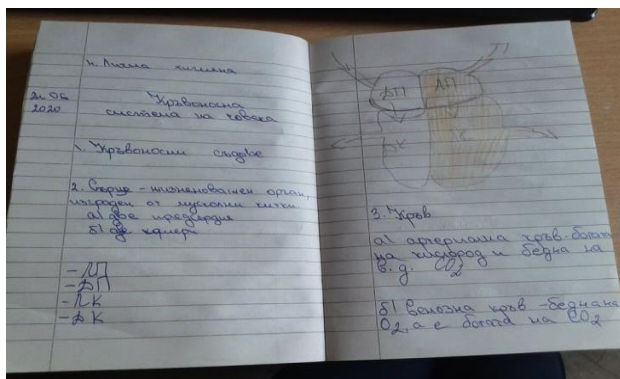 4. Лична хигиена
21.06
2020
Кръвоносна
система на човека
1. Кръвоносни съдове
2. Сърце - жизненоважен орган,
изграден от мускулни клетки
а) две предсърдия
б) две камери
- ЛП
- ДП
- ЛК
- ДК
ДП ЛП
К
3. Кръв
а) артериална кръв - богата
на кислород и бедна на
в. д. CO2
б) венозна кръв - бедна на
O2, а е богата на CO2